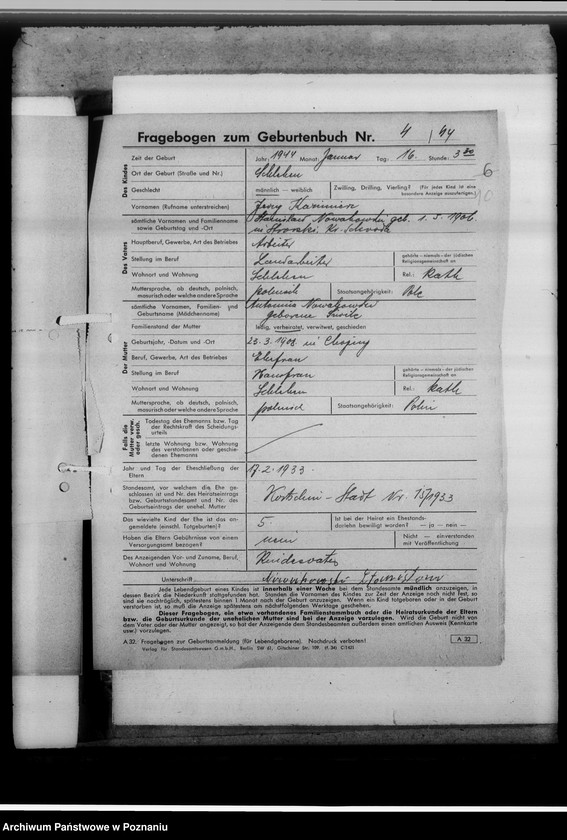 Fragebogen zum Geburtenbuch Nr. 4 / 44
Des Kindes
Zeit der Geburt
Jahr: 1944 Monat: Januar Tag: 16. Stunde: 3 30
Ort der Geburt (Straße und Nr.)
6
Geschlecht
männlich — weiblich
Zwilling, Drilling, Vierling? (Für jedes Kind ist eine besondere Anzeige auszufertigen.)
Vornamen (Rufname unterstreichen)
Jerzy Kazimierz
Des Vaters
sämtliche Vornamen und Familienname
sowie Geburtstag und -Ort
Stanislaus Nowakowski geb. 1. 5. 1906
in
Hauptberuf, Gewerbe, Art des Betriebes
Arbeiter
Stellung im Beruf
Landarbeiter
gehörte - niemals - der jüdischen
Religionsgemeinschaft an
Wohnort und Wohnung
Rel.: Kath
Muttersprache, ob deutsch, polnisch,
masurisch oder welche andere Sprache
polnisch
Staatsangehörigkeit: Pole
Der Mutter
sämtliche Vornamen, Familien- und
Geburtsname (Mädchenname)
Nowakowski
geborene
Familienstand der Mutter
ledig, verheiratet, verwitwet, geschieden
Geburtsjahr, -Datum und -Ort
23. 3. 1908 in
Beruf, Gewerbe, Art des Betriebes
Ehefrau
Stellung im Beruf
Hausfrau
gehörte - niemals - der jüdischen
Religionsgemeinschaft an
Wohnort und Wohnung
Rel.: Kath
Muttersprache, ob deutsch, polnisch,
masurisch oder welche andere Sprache
polnisch
Staatsangehörigkeit: Polin
Falls die Mutter verw. oder gesch.
Todestag des Ehemanns bzw. Tag
der Rechtskraft des Scheidungs-
urteils
letzte Wohnung bzw. Wohnung
des verstorbenen oder geschie-
denen Ehemanns
Jahr und Tag der Eheschließung der
Eltern
17. 2. 1933.
Standesamt, vor welchem die Ehe ge-
schlossen ist und Nr. des Heiratseintrags
bzw. Geburtsstandesamt und Nr. des
Geburtseintrags der unehel. Mutter
Stadt Nr. 15/1933
Das wievielte Kind der Ehe ist das an-
gemeldete (einschl. Totgeburten)?
5.
Ist bei der Heirat ein Ehestands-
darlehn bewilligt worden? — ja — nein —
Haben die Eltern Gebührnisse von einem
Versorgungsamt bezogen?
nein
Nicht — einverstanden
mit Veröffentlichung
Des Anzeigenden Vor- und Zuname, Beruf,
Wohnort und Wohnung
Kindesvater
Unterschrift
Jede Lebendgeburt eines Kindes ist innerhalb einer Woche bei dem Standesamte mündlich anzuzeigen, in
dessen Bezirk die Niederkunft stattgefunden hat. Standen die Vornamen des Kindes zur Zeit der Anzeige noch nicht fest, so
sind sie nachträglich, spätestens binnen 1 Monat nach der Geburt anzuzeigen. Wenn ein Kind totgeboren oder in der Geburt
verstorben ist, so muß die Anzeige spätestens am nächstfolgenden Werktage geschehen.
Dieser Fragebogen, ein etwa vorhandenes Familienstammbuch oder die Heiratsurkunde der Eltern
bzw. die Geburtsurkunde der unehelichen Mutter sind bei der Anzeige vorzulegen. Wird die Geburt nicht von
dem Vater oder der Mutter angezeigt, so hat der Anzeigende dem Standesbeamten außerdem einen amtlichen Ausweis (Kennkarte
usw.) vorzulegen.
A 32. Fragebogen zur Geburtsanmeldung (für Lebendgeborene). Nachdruck verboten!
A 32
Verlag für Standesamtswesen G.m.b.H., Berlin SW 61, Gitschiner Str. 109.
Archiwum Państwowe w Poznaniu